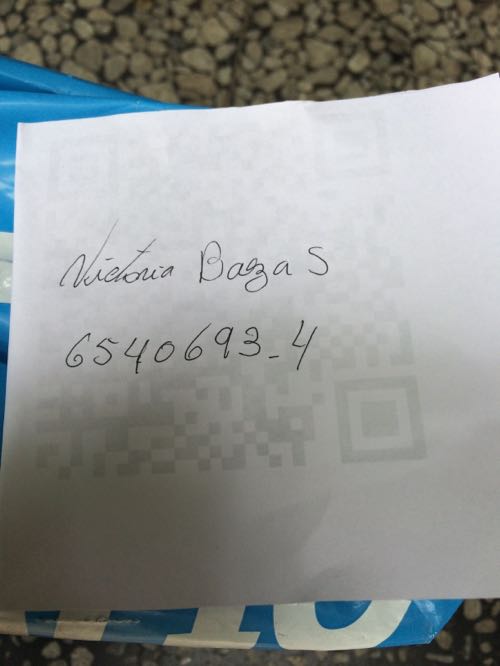 Victoria Baza S
6540693-4